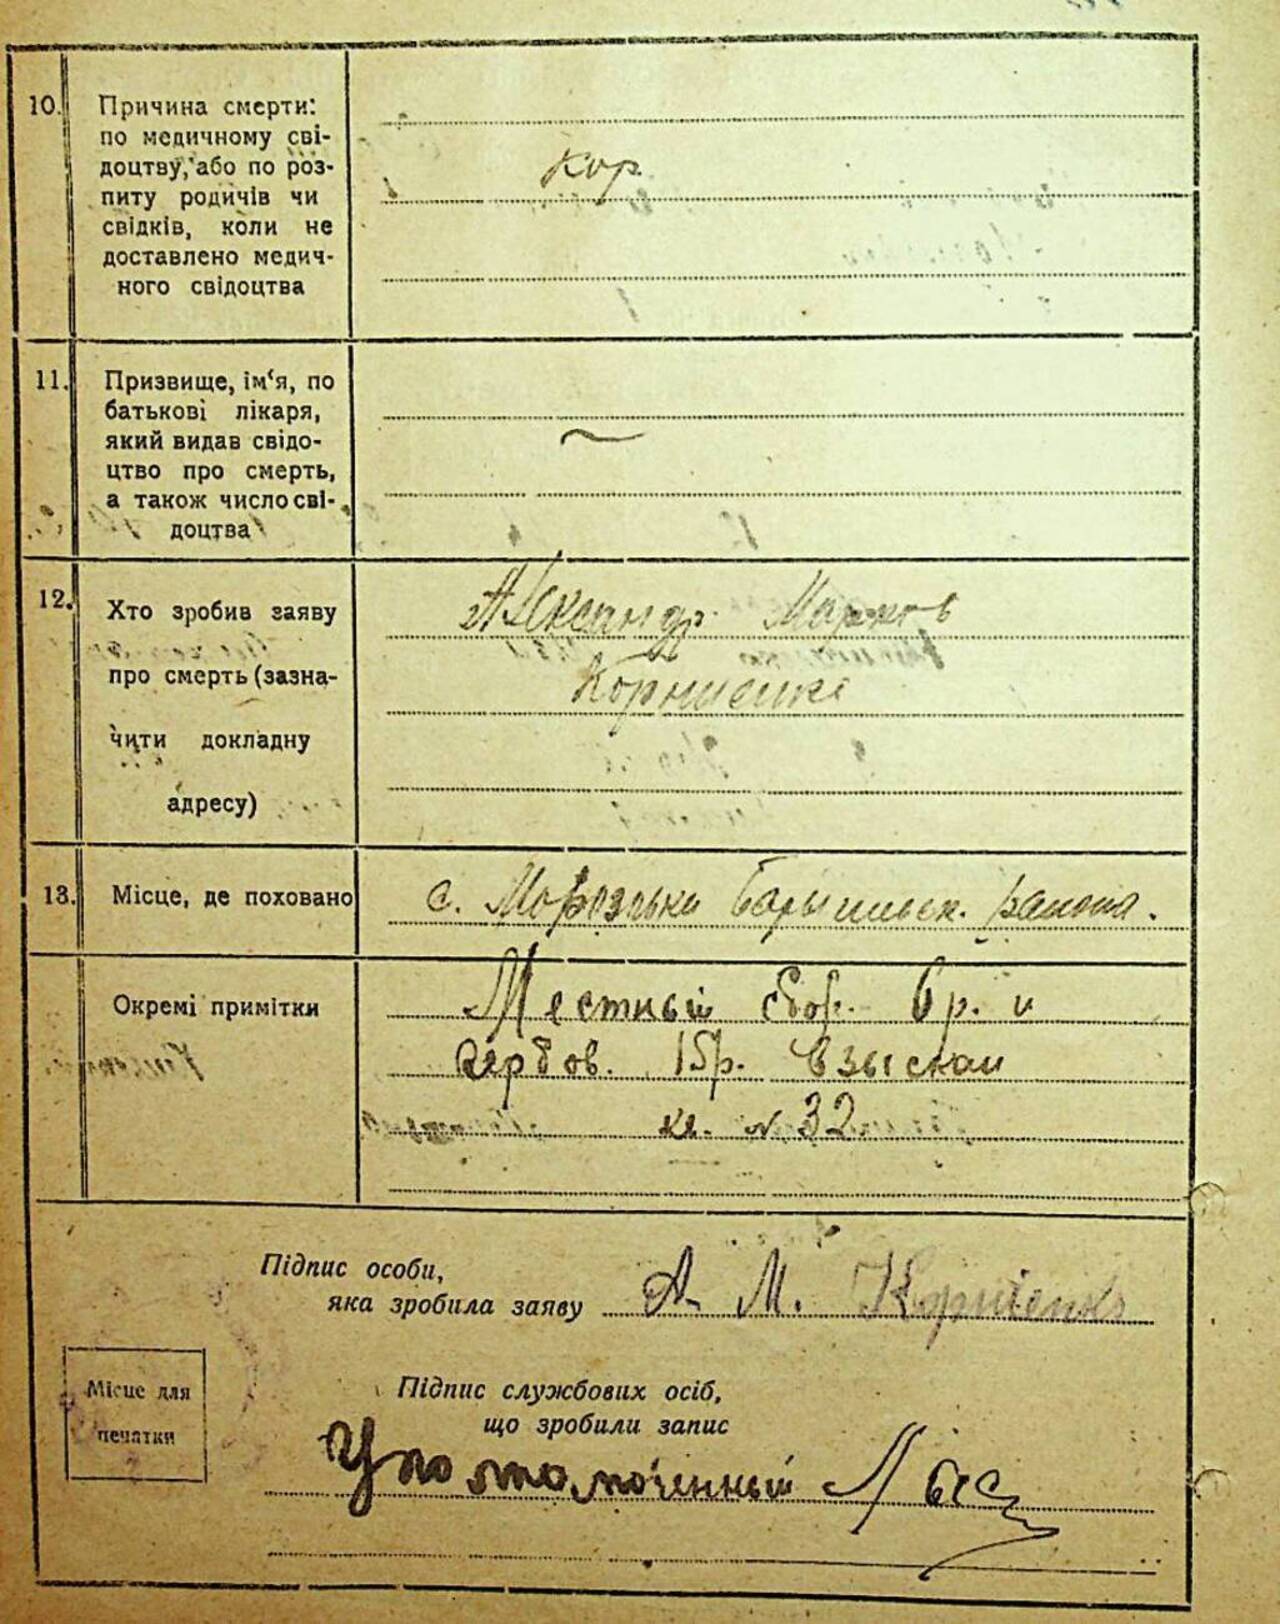 10. Причина смерти:
по медичному сві-
доцтву, або по роз-
питу родичів чи
свідків, коли не
доставлено медич-
ного свідоцтва
кор
11. Призвище, ім‘я, по
батькові лікаря,
який видав свідо-
цтво про смерть,
а також число сві-
доцтва
12. Хто зробив заяву
про смерть (зазна-
чити докладну
адресу)
Александр Марков
Корниенко
13. Місце, де поховано
с. Морозовка района.
Окремі примітки
Местный сбор. 6р. и
гербов. 15р. взыскан
кв. № 32
Підпис особи,
яка зробила заяву А. М. Корниенко
Місце для
печатки
Підпис службових осіб,
що зробили запис
Уполномоченный